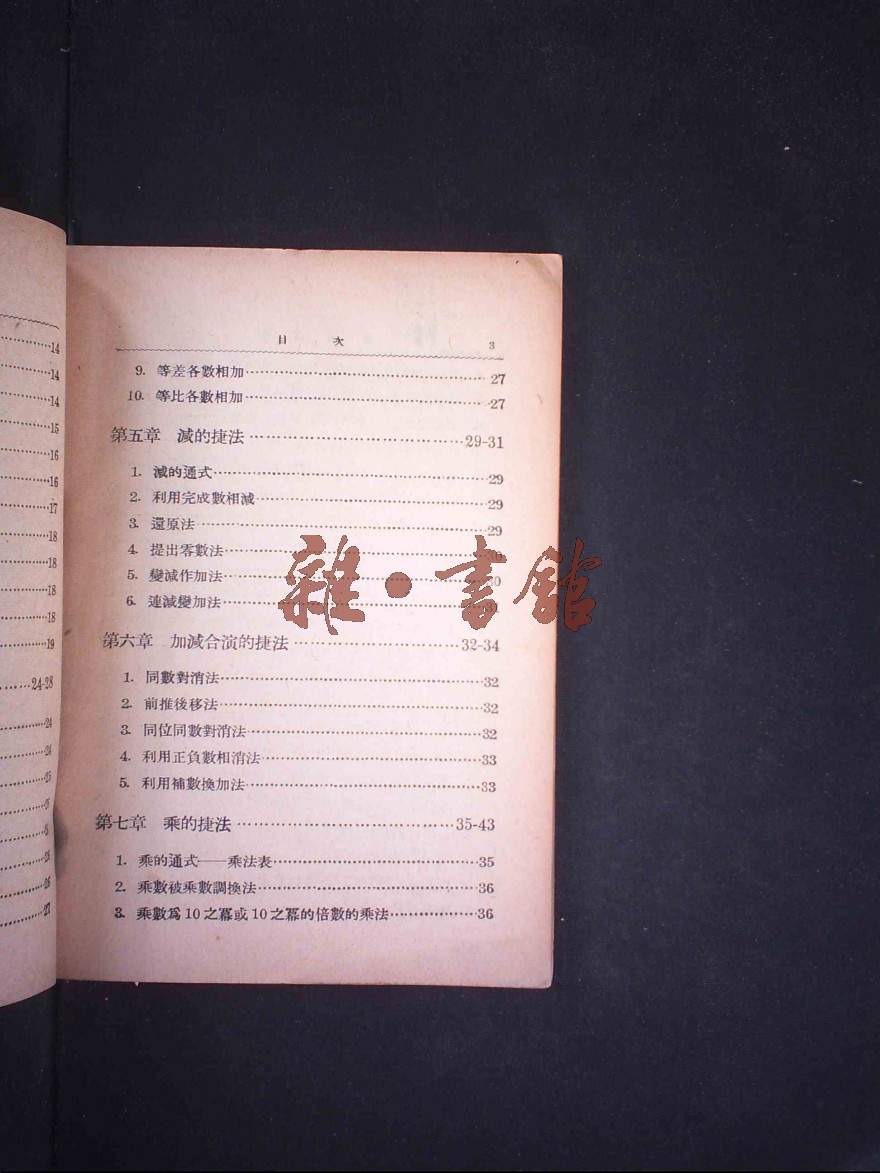 14
14
14
15
16
16
17
18
18
18
18
19
24-28
24
24
25
26
27
目　次　3
9. 等差各數相加 27
10. 等比各數相加 27
第五章　減的捷法 29-31
1. 減的通式 29
2. 利用完成數相減 29
3. 還原法 29
4. 提出零數法 30
5. 變減作加法 30
6. 連減變加法 31
第六章　加減合演的捷法 32-34
1. 同數對消法 32
2. 前推後移法 32
3. 同位同數對消法 32
4. 利用正負數相消法 33
5. 利用補數換加法 33
第七章　乘的捷法 35-43
1. 乘的通式——乘法表 35
2. 乘數被乘數調換法 36
3. 乘數爲10之冪或10之冪的倍數的乘法 36
雜・書館